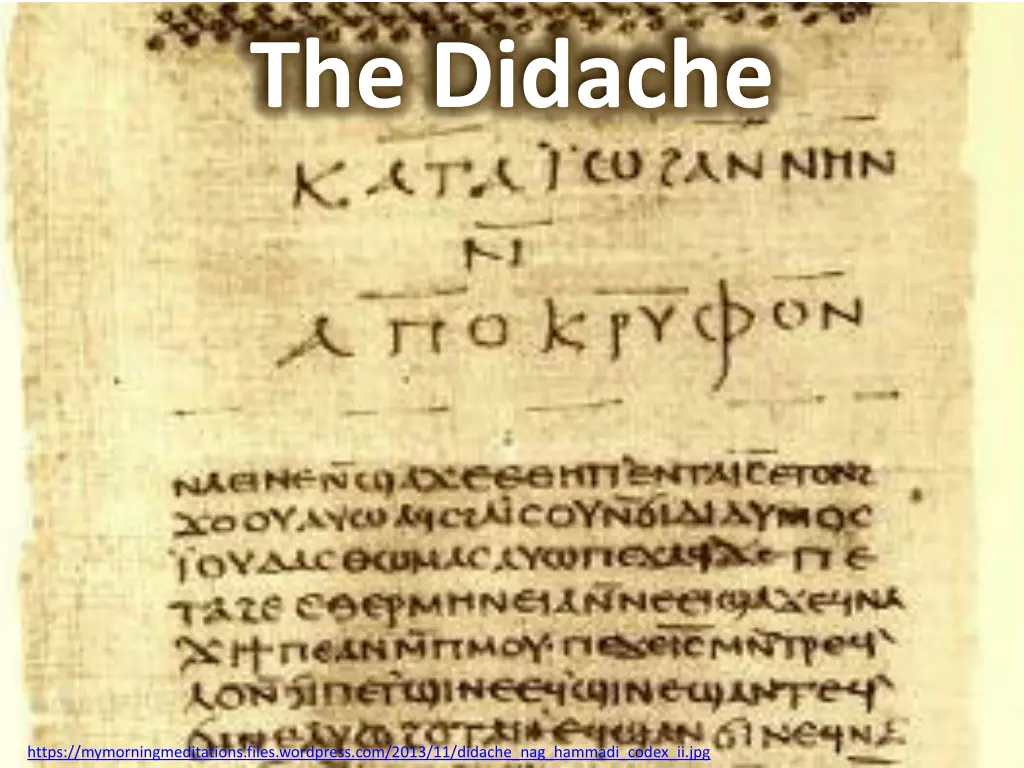 The Didache
ⲕⲁⲧⲁ ⲓ̈ⲱϩⲁⲛⲛⲏⲛ
ⲛ̅
ⲁⲡⲟⲕⲣⲩⲫⲟⲛ
ⲛⲁⲉⲓⲛⲉⲛ̅ϣⲁϫⲉⲉⲑⲏⲡ ⲉⲛⲧⲁⲓ̅ⲥ̅ⲉⲧⲟⲛϩ
ϫⲟⲟⲩⲁⲩⲱⲁϥⲥϩⲁⲓ̈ⲥⲟⲩⲛ̅ϭⲓⲇⲓⲇⲩⲙⲟⲥ
ⲓ̈ⲟⲩⲇⲁⲥⲑⲱⲙⲁⲥⲁⲩⲱⲡⲉϫⲁϥϫⲉ ⲡⲉ
ⲧⲁϩⲉ ⲉⲑⲉⲣⲙⲏⲛⲉⲓⲁⲛ̅ⲛⲉⲉⲓϣⲁϫⲉϥⲛⲁ
ϫⲓϯⲡⲉⲁⲛⲙ̅ⲡⲙⲟⲩ·ⲡⲉϫⲉⲓ̅ⲥ̅ⲙⲛ̅ⲧⲣⲉϥ
ⲗⲟⲛ̅ϭⲓⲡⲉⲧϣⲓⲛⲉⲉϥϣⲓⲛⲉϣⲁⲛⲧⲉϥ
ϭⲓⲛⲉⲁⲩⲱϩⲟⲧⲁⲛⲉϥϣⲁⲛϭⲓⲛⲉϥⲛⲁ
https://mymorningmeditations.files.wordpress.com/2013/11/didache_nag_hammadi_codex_ii.jpg